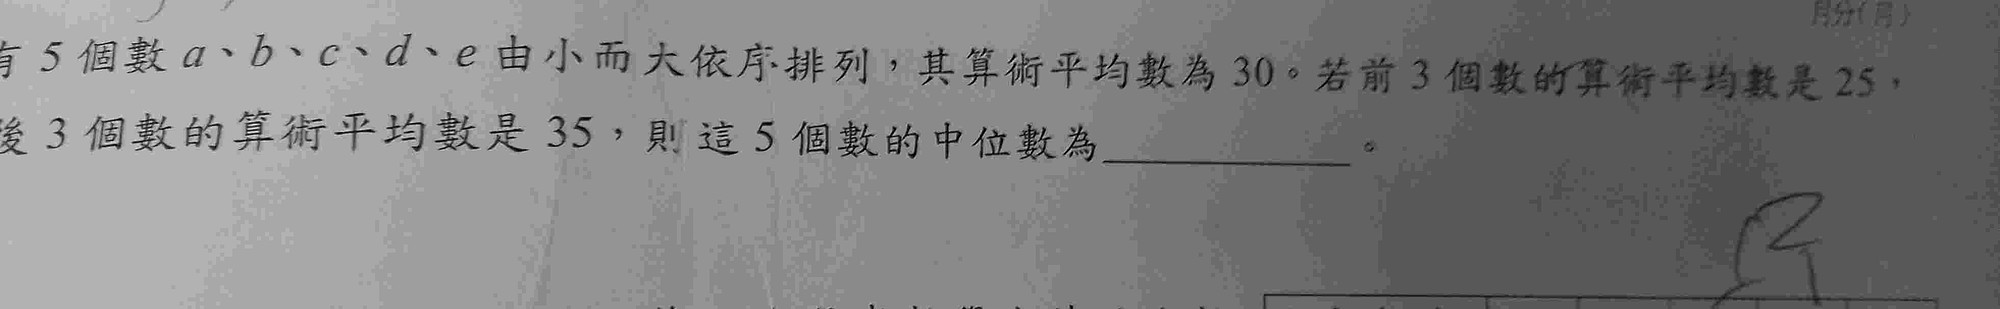 月分(月)
有 5 個數 a、b、c、d、e 由小而大依序排列,其算術平均數為 30。若前 3 個數的算術平均數是 25,
後 3 個數的算術平均數是 35,則這 5 個數的中位數為__________。